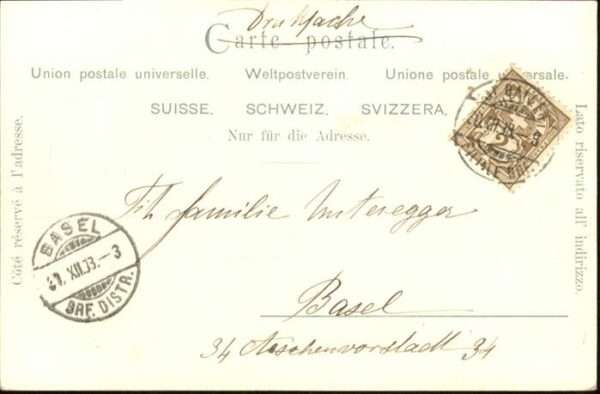 Drucksache
Carte postale.
Union postale universelle. Weltpostverein. Unione postale universale.
SUISSE. SCHWEIZ. SVIZZERA.
Nur für die Adresse.
Côté réservé à l'adresse.
Lato riservato all' indirizzo.
2
BASEL
XII.03.-3
BRF. DISTR.
familie Unteregger
Basel
34 Aeschenvorstadt 34